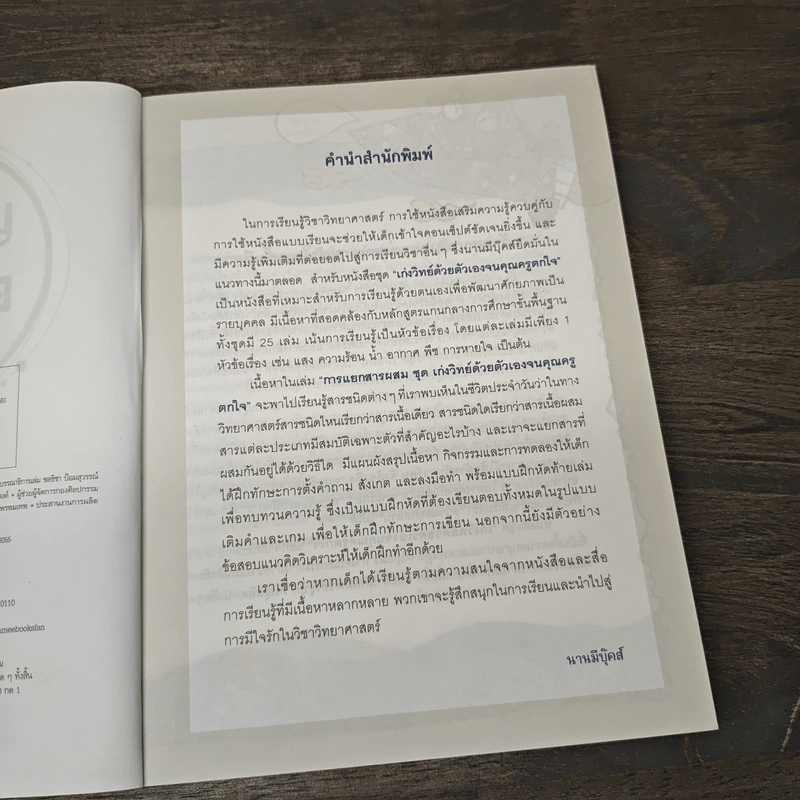 ญ
จ
บรรณาธิการเล่ม ชลธิชา ป้อมสุวรรณ์
ผู้ช่วยผู้จัดการกองศิลปกรรม
ประสานงานการผลิต
0110
ameebooksfan
ด ๆ ทั้งสิ้น
0 กด 1
คำนำสำนักพิมพ์
ในการเรียนรู้วิชาวิทยาศาสตร์ การใช้หนังสือเสริมความรู้ควบคู่กับ
การใช้หนังสือแบบเรียนจะช่วยให้เด็กเข้าใจคอนเซ็ปต์ชัดเจนยิ่งขึ้น และ
มีความรู้เพิ่มเติมที่ต่อยอดไปสู่การเรียนวิชาอื่น ๆ ซึ่งนานมีบุ๊คส์ยึดมั่นใน
แนวทางนี้มาตลอด สำหรับหนังสือชุด "เก่งวิทย์ด้วยตัวเองจนคุณครูตกใจ"
เป็นหนังสือที่เหมาะสำหรับการเรียนรู้ด้วยตนเองเพื่อพัฒนาศักยภาพเป็น
รายบุคคล มีเนื้อหาที่สอดคล้องกับหลักสูตรแกนกลางการศึกษาขั้นพื้นฐาน
ทั้งชุดมี 25 เล่ม เน้นการเรียนรู้เป็นหัวข้อเรื่อง โดยแต่ละเล่มมีเพียง 1
หัวข้อเรื่อง เช่น แสง ความร้อน น้ำ อากาศ พืช การหายใจ เป็นต้น
เนื้อหาในเล่ม "การแยกสารผสม ชุด เก่งวิทย์ด้วยตัวเองจนคุณครู
ตกใจ" จะพาไปเรียนรู้สารชนิดต่าง ๆ ที่เราพบเห็นในชีวิตประจำวันว่าในทาง
วิทยาศาสตร์สารชนิดไหนเรียกว่าสารเนื้อเดียว สารชนิดใดเรียกว่าสารเนื้อผสม
สารแต่ละประเภทมีสมบัติเฉพาะตัวที่สำคัญอะไรบ้าง และเราจะแยกสารที่
ผสมกันอยู่ได้ด้วยวิธีใด มีแผนผังสรุปเนื้อหา กิจกรรมและการทดลองให้เด็ก
ได้ฝึกทักษะการตั้งคำถาม สังเกต และลงมือทำ พร้อมแบบฝึกหัดท้ายเล่ม
เพื่อทบทวนความรู้ ซึ่งเป็นแบบฝึกหัดที่ต้องเขียนตอบทั้งหมดในรูปแบบ
เติมคำและเกม เพื่อให้เด็กฝึกทักษะการเขียน นอกจากนี้ยังมีตัวอย่าง
ข้อสอบแนวคิดวิเคราะห์ให้เด็กฝึกทำอีกด้วย
เราเชื่อว่าหากเด็กได้เรียนรู้ตามความสนใจจากหนังสือและสื่อ
การเรียนรู้ที่มีเนื้อหาหลากหลาย พวกเขาจะรู้สึกสนุกในการเรียนและนำไปสู่
การมีใจรักในวิชาวิทยาศาสตร์
นานมีบุ๊คส์